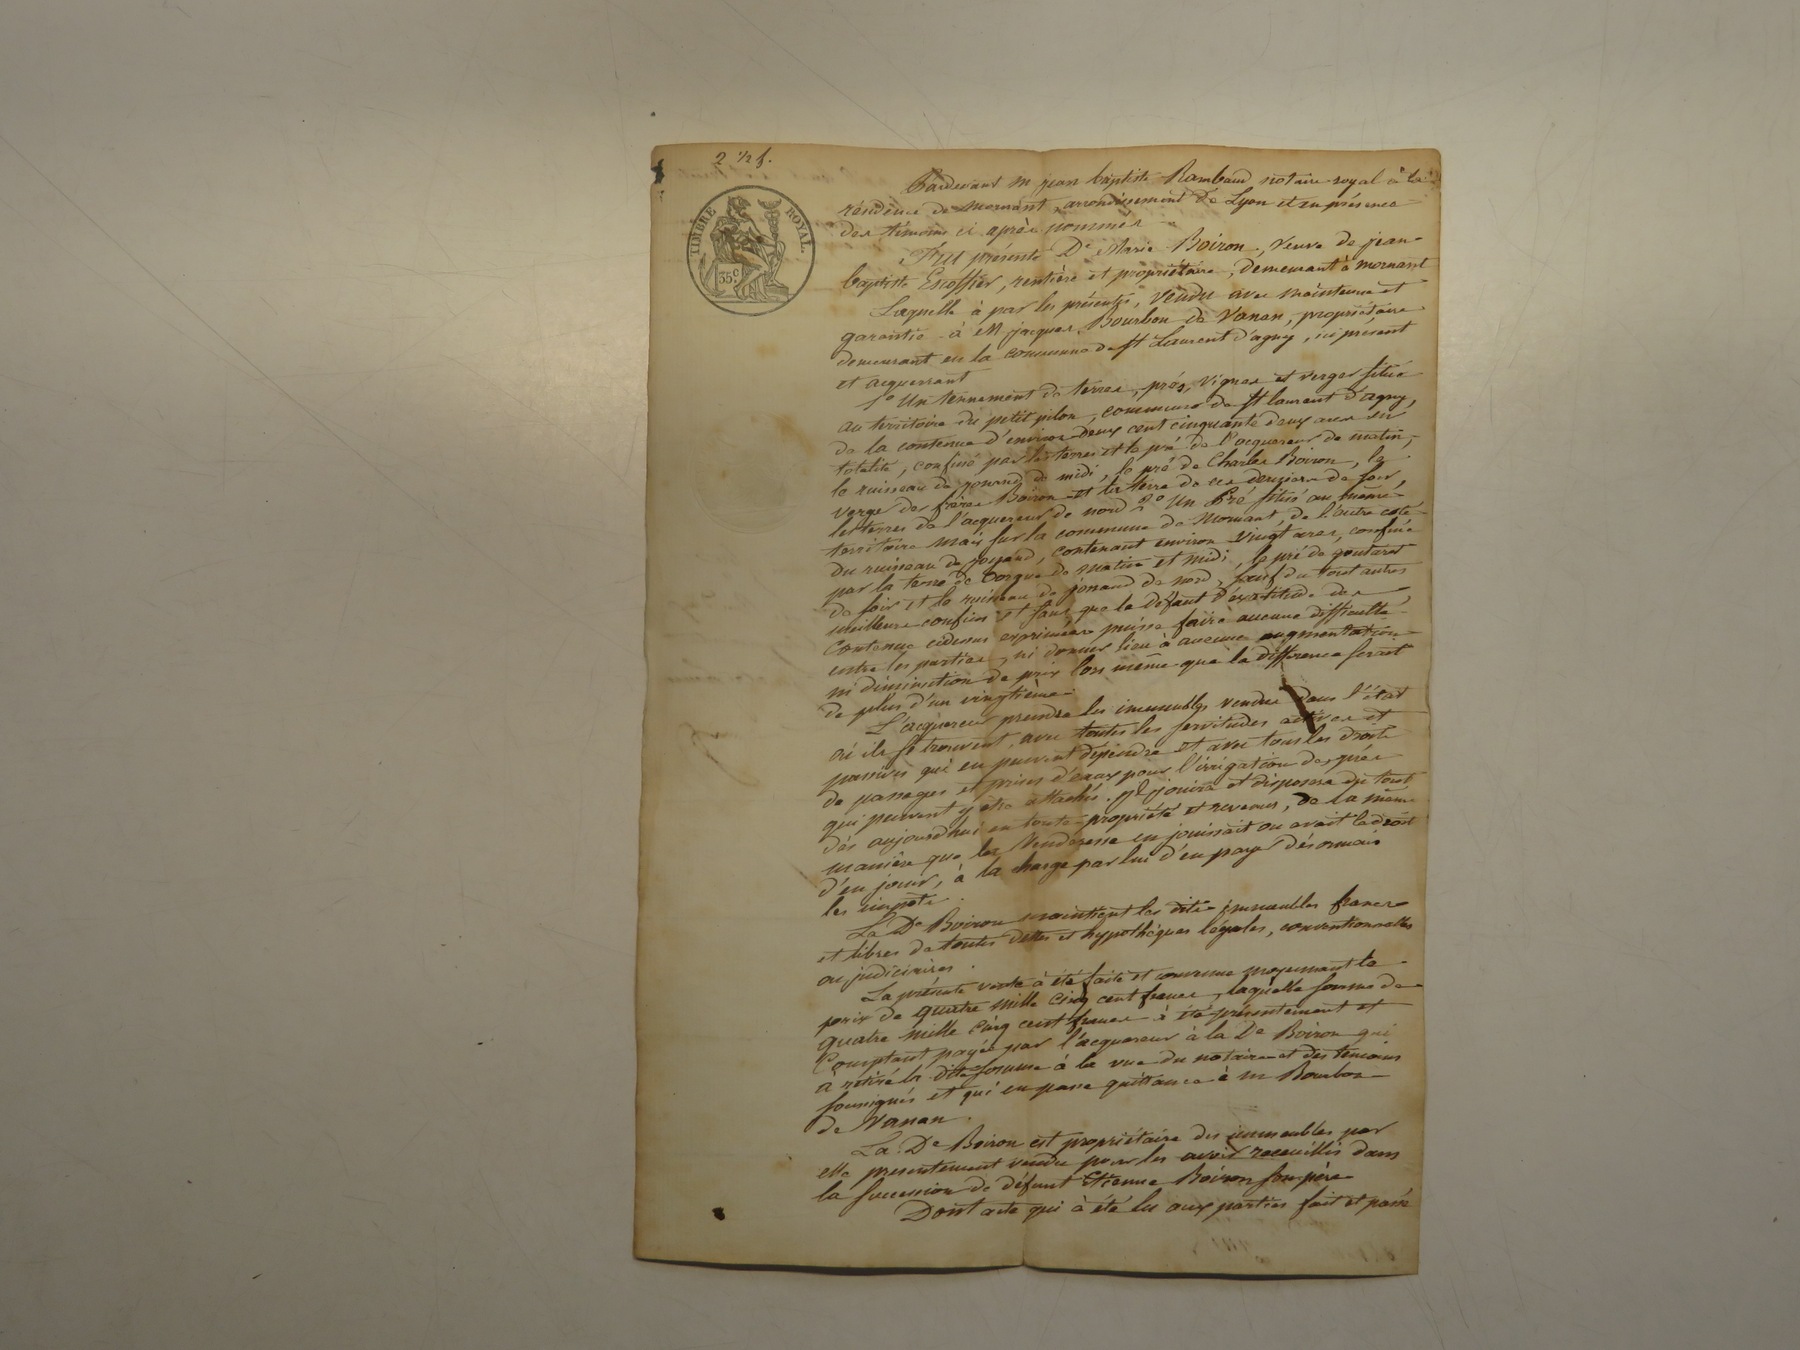 2 1/2 f.
TIMBRE ROYAL
35 c.
Pardevant m jean baptiste Rambaud notaire royal à la
résidence de Mornant, arrondissement de Lyon et en présence
des témoins ci après nommés
Fut présente De Marie Boiron, veuve de jean
baptiste Escoffier, rentière et propriétaire, demeurant à mornant
Laquelle à par les présentes, vendu avec maintenue et
garantie à M jacques Bourbon de Vanan, propriétaire
demeurant en la commune de St Laurent d'agny, ici présent
et acquerrant
1° Un tennement de terres, prés, vignes et verger situé
au territoire du petit pilon, commune de St laurent d'agny,
de la contenue d'environ deux cent cinquante deux ares en
totalité, confiné par les terres et le pré de l'acquereur de matin,
le ruisseau de jonand de midi, le pré de Charles Boiron, le
verger des frères Boiron et la terre de ces derniers de soir,
les terres de l'acquereur de nord 2° Un Pré situé au même
territoire mais sur la commune de Mornant, de l'autre coté
du ruisseau de jonand, contenant environ vingt ares, confiné
par la terre de de matin et midi, le pré de goutaret
de soir et le ruisseau de jonand de nord, sauf du tout autres
meilleurs confins et sans que le défaut d'exatitude des
contenues cidessus exprimées puisse faire aucune difficulté
entre les parties, ni donner lieu à aucune augmentation
ni diminution de prix lors même que la différence serait
de plus d'un vingtième
L'acquereur prendra les immeubles vendus dans l'état
où ils se trouvent, avec toutes les servitudes actives et
passives qui en peuvent dépendre et avec tous les droits
de passages et prises d'eaux pour l'irrigation des prés
qui peuvent y être attachés. Il jouira et disposera du tout
dès aujourdhui en toute propriété et revenus, de la même
manière que la Venderesse en jouissait ou avait le droit
d'en jouir, à la charge par lui d'en payer désormais
les impots.
La De Boiron maintient les dits immeubles francs
et libres de toutes dettes et hypothèques légales, conventionnelles
ou judiciaires.
La présente vente à été faite et convenue moyennant le
prix de quatre mille cinq cent francs, laquelle somme de
quatre mille cinq cent francs à été présentement et
Comptant payée par l'acquereur à la De Boiron qui
à retiré la ditte somme à la vue du notaire et des témoins
soussignés et qui en passe quittance à m Bourbon
de Vanan.
La De Boiron est propriétaire des immeubles par
elle presentement vendu pour les avoir receuillis dans
la succession de défunt Etienne Boiron son père
Dont acte qui à été lu aux parties fait et passé